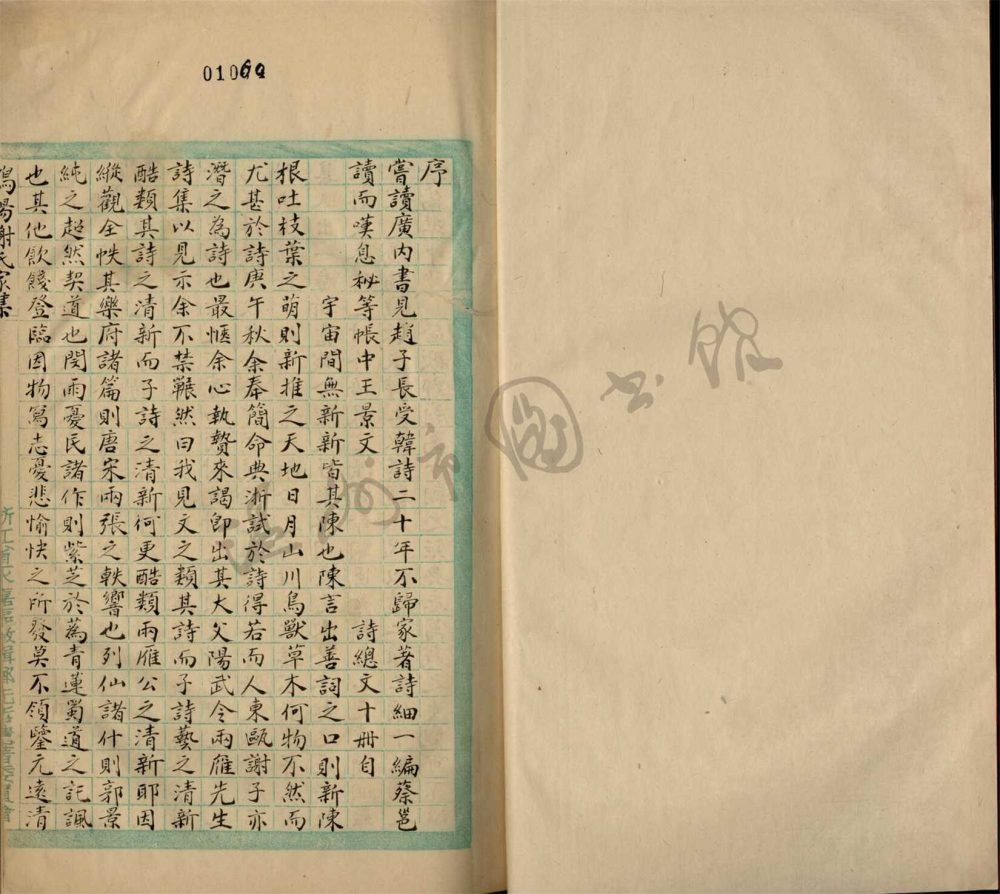 01069
序
嘗讀廣内書見趙子長受韓詩二十年不歸家著詩細一編蔡邕
讀而嘆息秘等帳中王景文 詩總文十冊自
宇宙間無新新皆其陳也陳言出善詞之口則新陳
根吐枝葉之萌則新推之天地日月山川鳥獸草木何物不然而
尤甚於詩庚午秋余奉簡命典浙試於詩得若而人東甌謝子亦
潛之為詩也最愜余心執贄來謁卽出其大父陽武令兩雁先生
詩集以見示余不禁囅然曰我見文之類其詩而子詩藝之清新
酷類其詩之清新而子詩之清新何更酷類兩雁公之清新耶因
縱觀全帙其樂府諸篇則唐宋兩張之軼響也列仙諸什則郭景
純之超然契道也閔雨憂民諸作則紫芝於蔿青蓮蜀道之記諷
也其他飲餞登臨因物寫志憂悲愉快之所發莫不領鑒元遠清
陽謝氏家集
圖書館